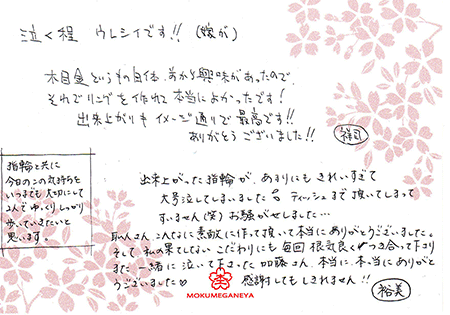 泣く程 ウレシイです!! (嫁が)
木目金というもの自体、昔から興味があったので、
それでリングを作れて本当によかったです!
出来上がりもイメージ通りで最高です!!
ありがとうございました!!
祥司
指輪と共に
今日のこの気持ちを
いつまでも大切にして
2人でゆっくりしっかり
歩いていきたいと
思います。
出来上がった指輪が、あまりにもきれいすぎて
大号泣してしまいました ティッシュまで頂いてしまって
すいません(笑) お騒がせしました…
職人さん こんなに素敵に作って頂いて本当にありがとうございました。
そして 私の果てしない こだわりにも 毎回 根気良く つき合って下さり
また 一緒に 泣いて下さった 加藤さん、本当に、本当に ありがと
うございました♡ 感謝してもしきれません!!
裕美
MOKUMEGANEYA